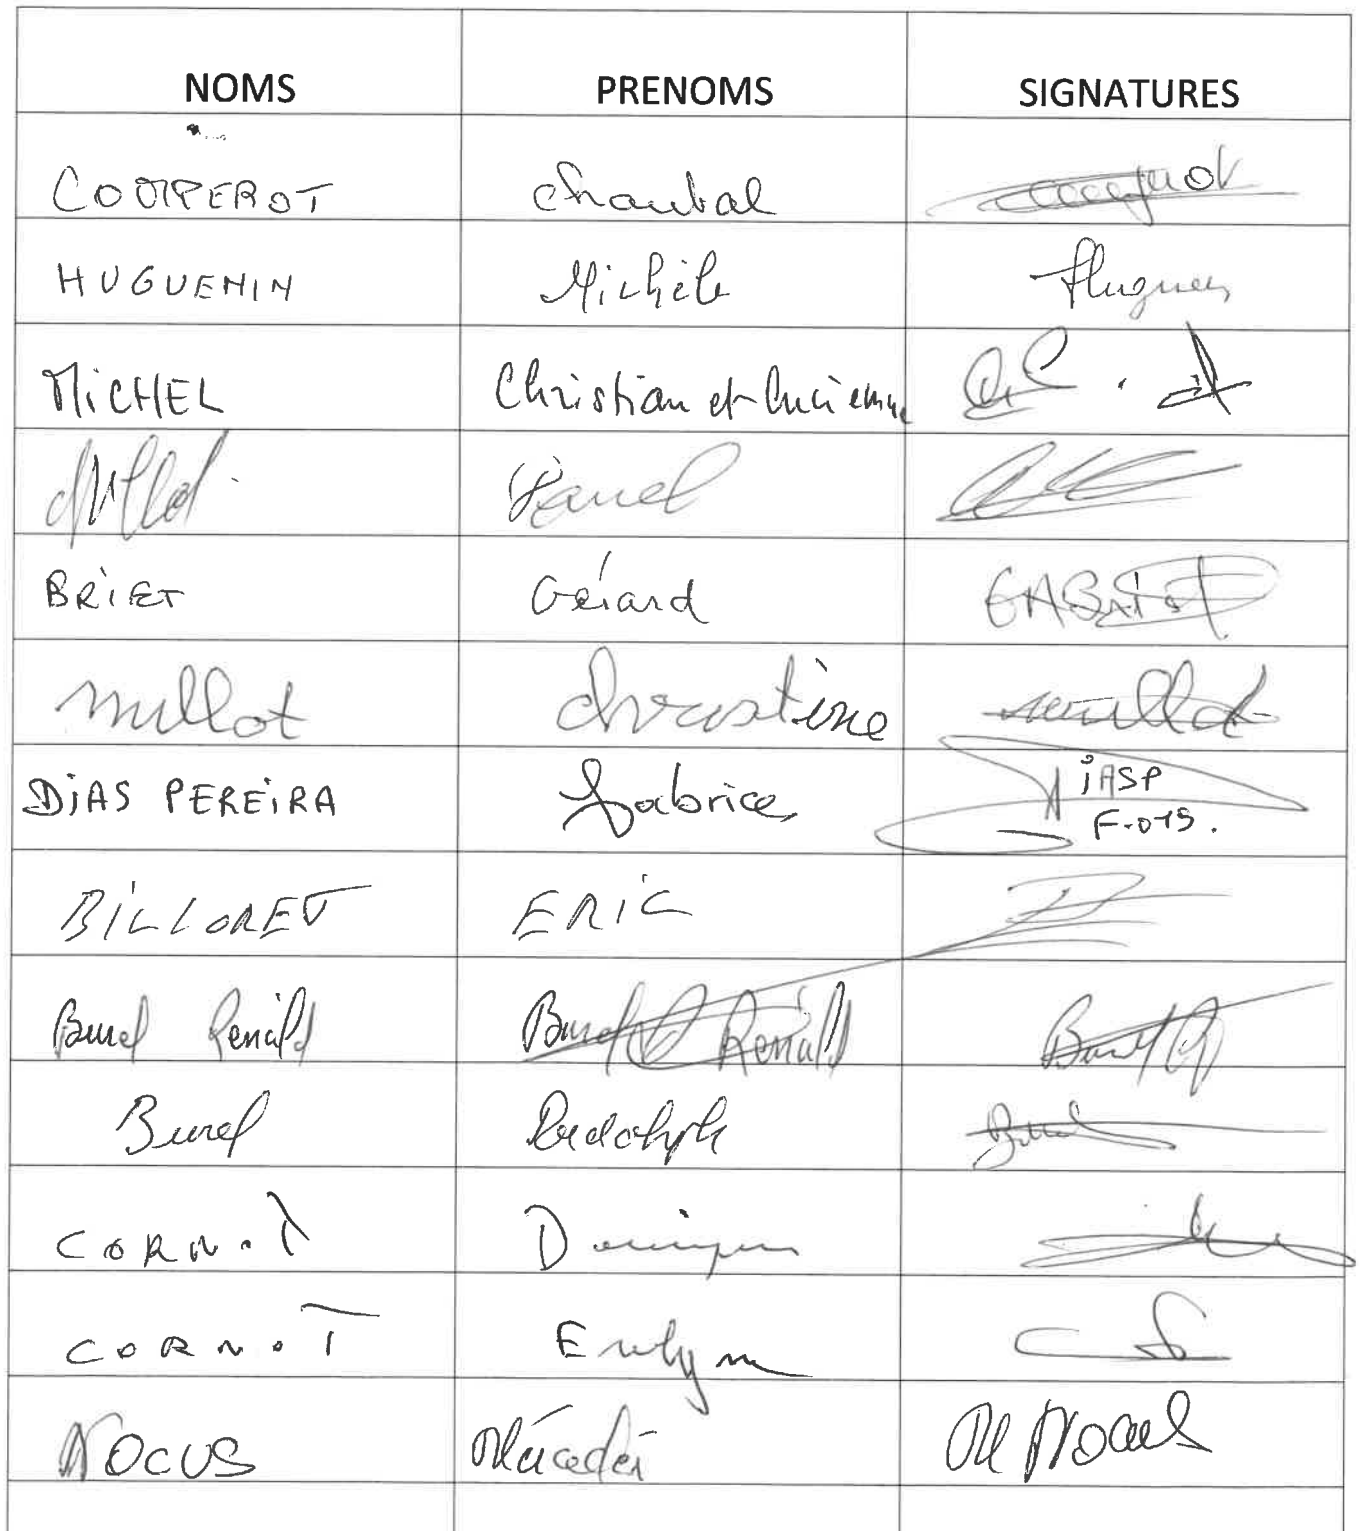 NOMS PRENOMS SIGNATURES
COMPEROT Chantal
HUGUENIN Michèle Hugues
MiCHEL Christian et Lucienne
BRiET Gérard
millot christine millot
DiAS PEREiRA fabrice DiASP
F-019.
BiLLORET ERiC
Burel Renald Burel Renald Burel R
Burel Rudolph Burel
CORNOT Dominique
CORNOT Evelyne
NOCUS Mércédès M Nocus